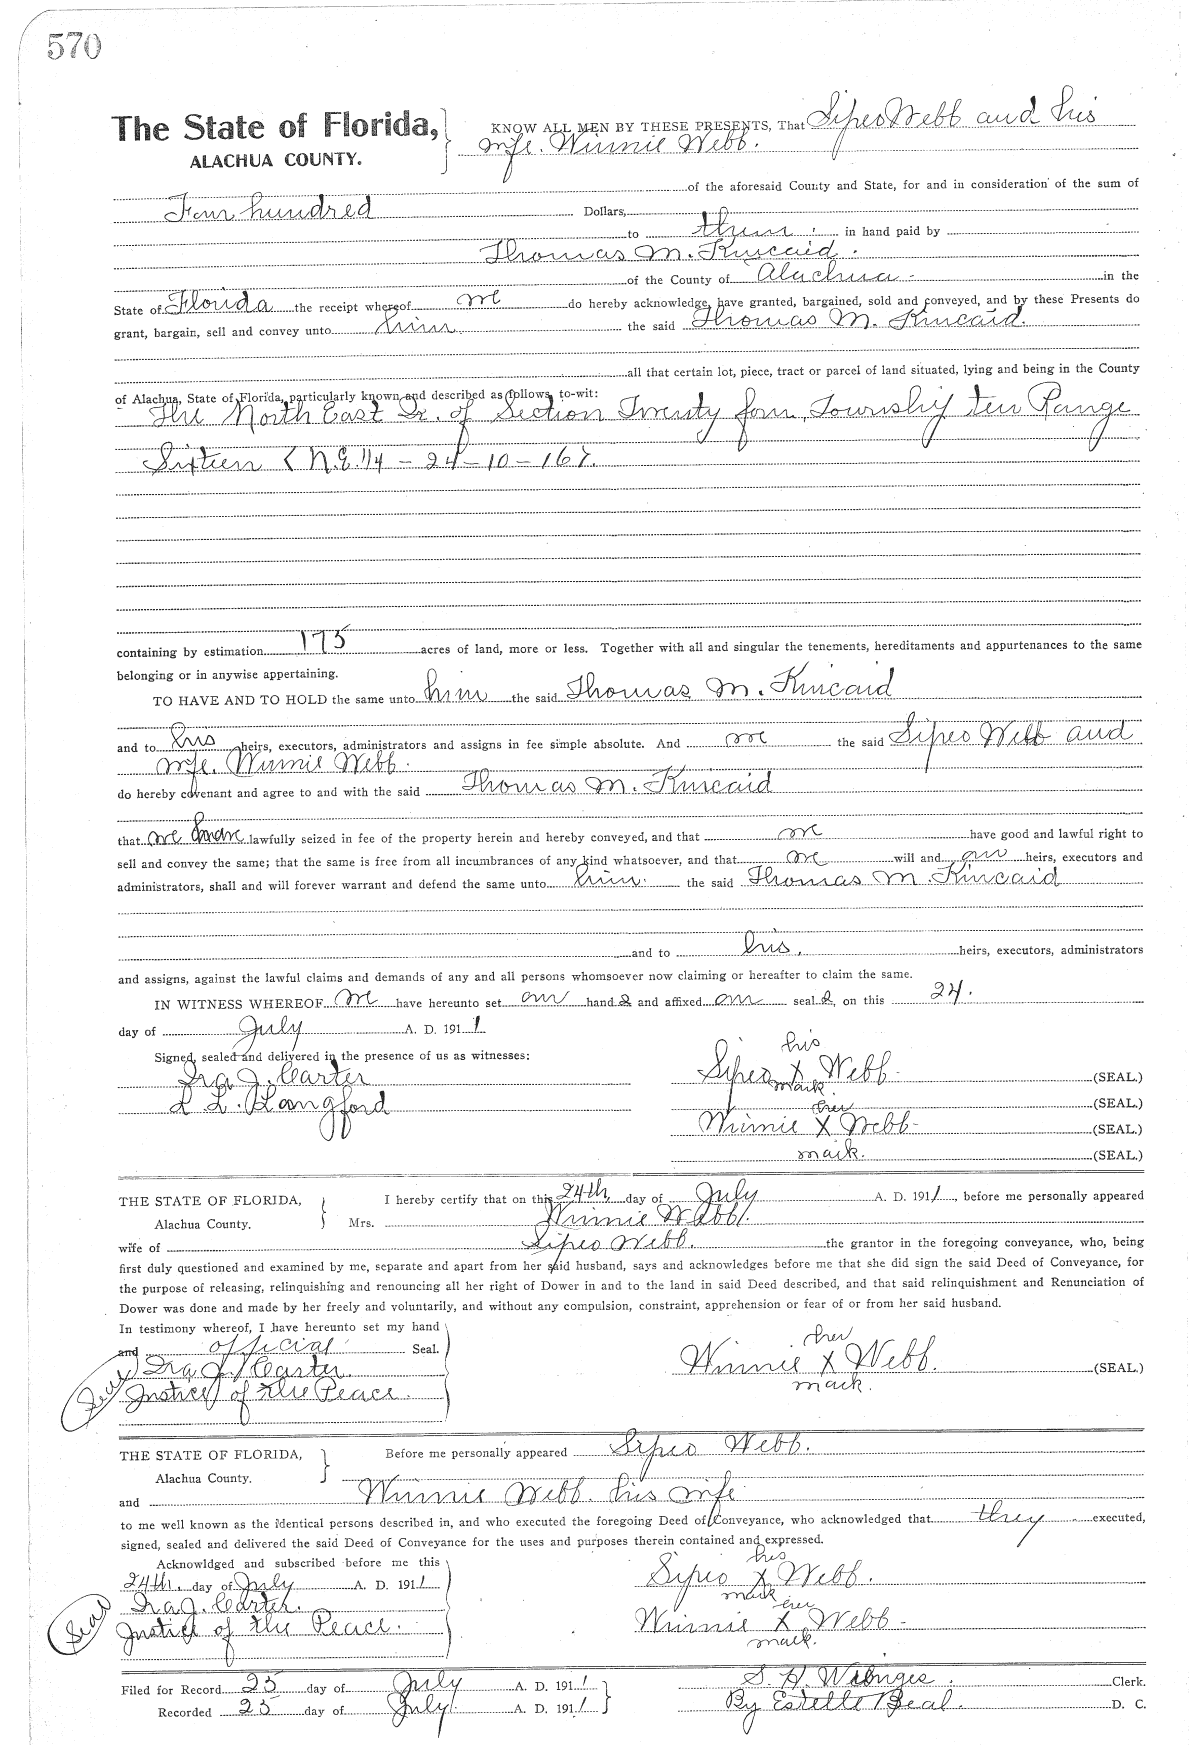 570
The State of Florida,
ALACHUA COUNTY.
KNOW ALL MEN BY THESE PRESENTS, That Sipeo Webb and his
wife. Winnie Webb.
of the aforesaid County and State, for and in consideration of the sum of
Four hundred Dollars,
to them in hand paid by
Thomas M. Kincaid.
of the County of Alachua in the
State of Florida the receipt whereof we do hereby acknowledge, have granted, bargained, sold and conveyed, and by these Presents do
grant, bargain, sell and convey unto him the said Thomas M. Kincaid.
all that certain lot, piece, tract or parcel of land situated, lying and being in the County
of Alachua, State of Florida, particularly known and described as follows, to-wit:
The North East Qr. of Section Twenty four, Township ten Range
Sixteen (N.E. 1/4 - 24 - 10 - 16).
containing by estimation 175 acres of land, more or less. Together with all and singular the tenements, hereditaments and appurtenances to the same
belonging or in anywise appertaining.
TO HAVE AND TO HOLD the same unto him the said Thomas M. Kincaid
and to his heirs, executors, administrators and assigns in fee simple absolute. And we the said Sipeo Webb and
wife. Winnie Webb.
do hereby covenant and agree to and with the said Thomas M. Kincaid
that we lawfully seized in fee of the property herein and hereby conveyed, and that we have good and lawful right to
sell and convey the same; that the same is free from all incumbrances of any kind whatsoever, and that we will and our heirs, executors and
administrators, shall and will forever warrant and defend the same unto him. the said Thomas M. Kincaid
and to his, heirs, executors, administrators
and assigns, against the lawful claims and demands of any and all persons whomsoever now claiming or hereafter to claim the same.
IN WITNESS WHEREOF we have hereunto set our hand s and affixed our seal s, on this 24.
day of July A. D. 191 1
Signed, sealed and delivered in the presence of us as witnesses:
his
Ira J. Carter Sipeo X Webb (SEAL.)
mark
L L. Langford (SEAL.)
her
Winnie X Webb (SEAL.)
mark. (SEAL.)
THE STATE OF FLORIDA, I hereby certify that on this 24th day of July A. D. 191 1, before me personally appeared
Alachua County. Mrs. Winnie Webb.
wife of Sipeo Webb. the grantor in the foregoing conveyance, who, being
first duly questioned and examined by me, separate and apart from her said husband, says and acknowledges before me that she did sign the said Deed of Conveyance, for
the purpose of releasing, relinquishing and renouncing all her right of Dower in and to the land in said Deed described, and that said relinquishment and Renunciation of
Dower was done and made by her freely and voluntarily, and without any compulsion, constraint, apprehension or fear of or from her said husband.
In testimony whereof, I have hereunto set my hand
and official Seal.
her
Seal Ira J. Carter. Winnie X Webb. (SEAL.)
Justice of the Peace. mark.
THE STATE OF FLORIDA, Before me personally appeared Sipeo Webb.
Alachua County.
and Winnie Webb. his wife
to me well known as the identical persons described in, and who executed the foregoing Deed of Conveyance, who acknowledged that they executed,
signed, sealed and delivered the said Deed of Conveyance for the uses and purposes therein contained and expressed.
Acknowldged and subscribed before me this his
24th. day of July A. D. 191 1 Sipeo X Webb.
mark
Seal Ira J. Carter. her
Justice of the Peace. Winnie X Webb
mark.
Filed for Record 25 day of July A. D. 191 1 S. H. Wienges. Clerk.
Recorded 25 day of July A. D. 191 1 By Estelle Beal. D. C.